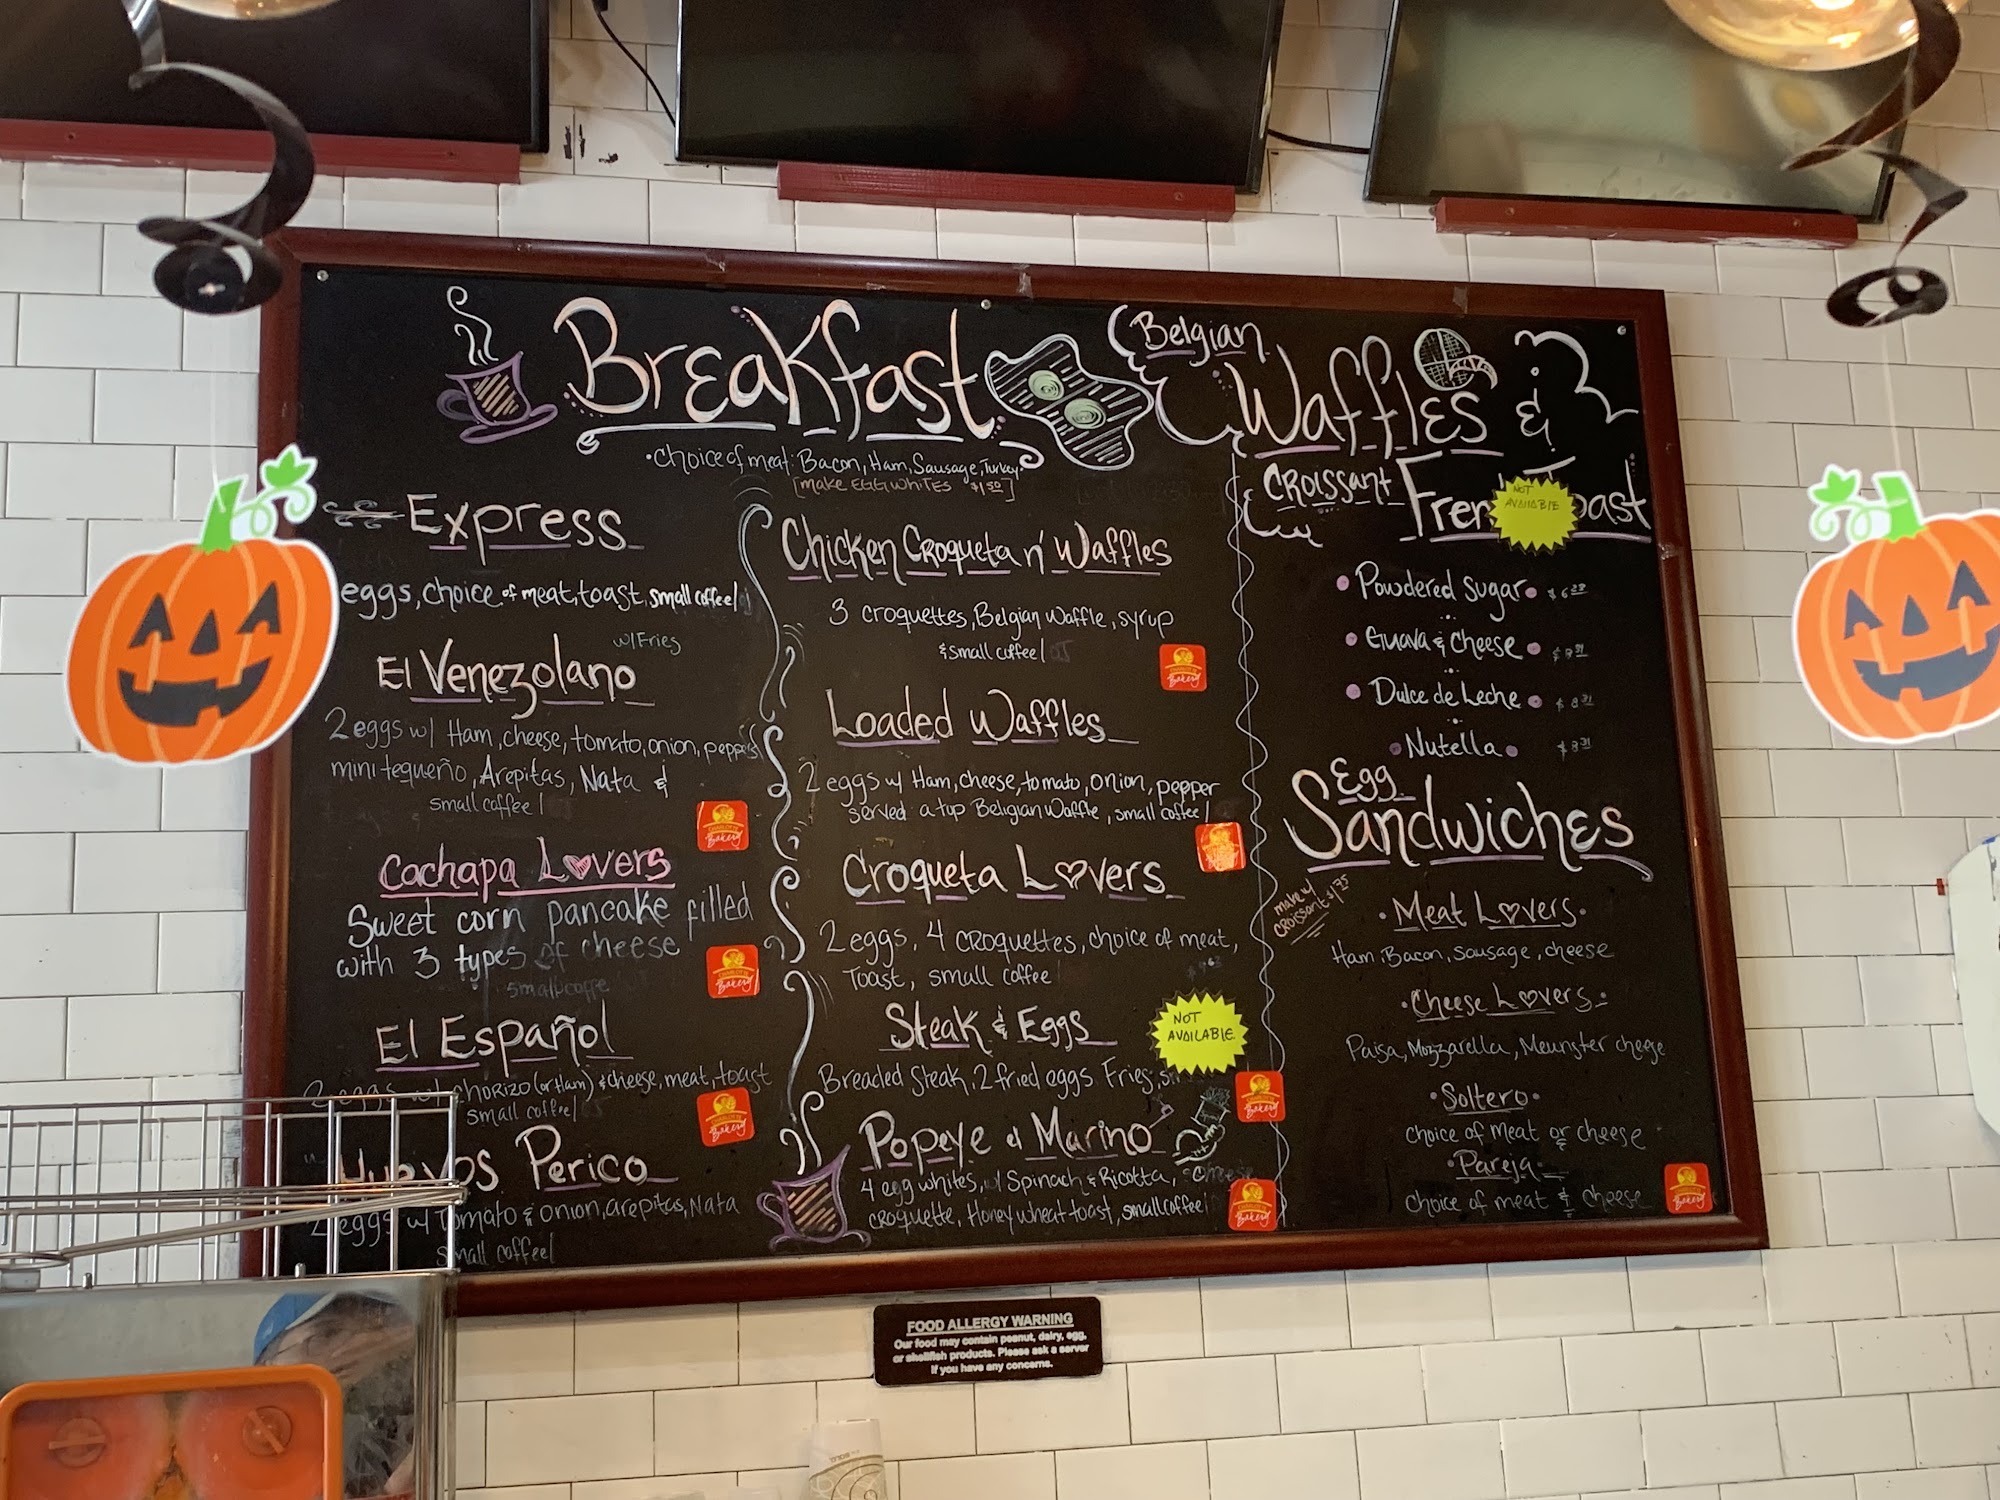 Breakfast
• Choice of meat: Bacon, Ham, Sausage, Turkey
[make EGG whites $1.50]
Express
eggs, choice of meat, toast, small coffee/
w/Fries
El Venezolano
2 eggs w/ Ham, cheese, tomato, onion, peppers
mini tequeño, Arepitas, Nata &
small coffee/
Cachapa Lovers
Sweet corn pancake filled
with 3 types of cheese
small coffe
El Español
2 eggs w/ chorizo (or Ham) & cheese, meat, toast
small coffee/
Huevos Perico
2 eggs w/ Tomato & onion, arepitas, Nata
small coffee/
Chicken Croqueta n' Waffles
3 croquettes, Belgian Waffle, syrup
& small coffee/
Loaded Waffles
2 eggs w/ Ham, cheese, tomato, onion, pepper
served a top Beligian Waffle, small coffee/
Croqueta Lovers
2 eggs, 4 croquettes, choice of meat,
Toast, small coffee
Steak & Eggs
NOT
AVAILABLE
Breaded Steak, 2 fried eggs Fries,
Popeye el Marino
4 egg whites, w/ Spinach & Ricotta, cheese
croquette, Honey wheat toast, small coffee/
Belgian
Waffles &
Croissant French Toast
NOT
AVAILABLE
Powdered Sugar
Guava & Cheese
Dulce de Leche
Nutella
Egg
Sandwiches
make w/
croissant
• Meat Lovers •
Ham, Bacon, Sausage, cheese
• Cheese Lovers •
Paisa, Mozzarella, Meunster cheese
• Soltero •
choice of meat or cheese
• Pareja •
choice of meat & cheese
Bakery
Bakery
Bakery
Bakery
Bakery
Bakery
Bakery
FOOD ALLERGY WARNING
Our food may contain peanut, dairy, egg,
or shellfish products. Please ask a server
if you have any concerns.